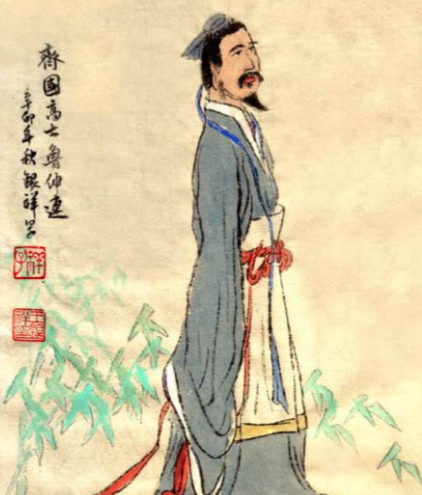 齊國高士魯仲連
辛卯年秋銀祥写